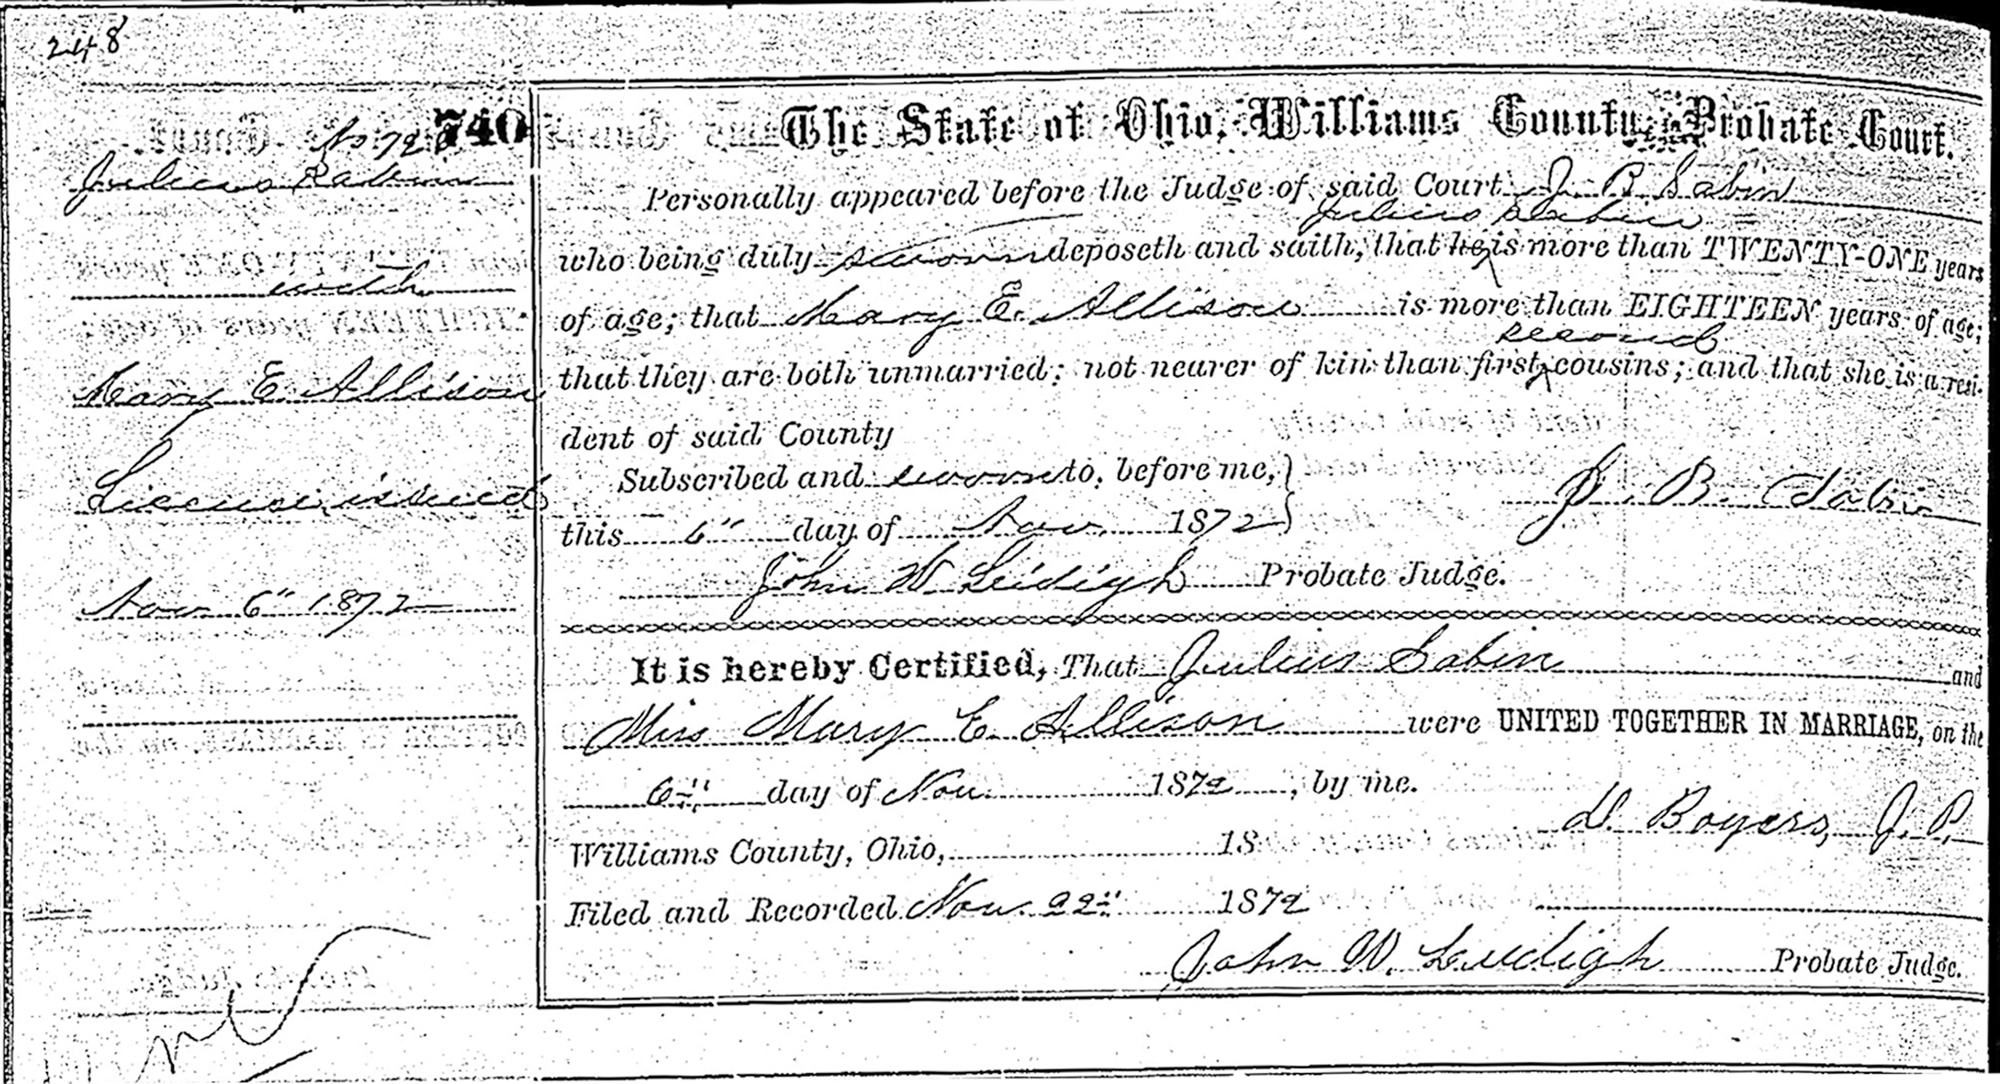 248
740
Julius Sabin
with
Mary E. Allison
License issued
Nov 6" 1872
The State of Ohio, Williams County, Probate Court.
Personally appeared before the Judge of said Court J. B. Sabin
Julius Sabin
who being duly sworn deposeth and saith, that he is more than TWENTY-ONE years
of age; that Mary E. Allison is more than EIGHTEEN years of age;
second
that they are both unmarried; not nearer of kin than first cousins; and that she is a resi-
dent of said County
Subscribed and sworn to, before me,
J. B. Sabin
this 6" day of Nov. 1872
John W. Leidigh Probate Judge.
It is hereby Certified, That Julius Sabin and
Miss Mary E. Allison were UNITED TOGETHER IN MARRIAGE, on the
6" day of Nov. 1872, by me.
D. Boyers, J. P.
Williams County, Ohio, 18
Filed and Recorded Nov. 22" 1872
John W. Leidigh Probate Judge.